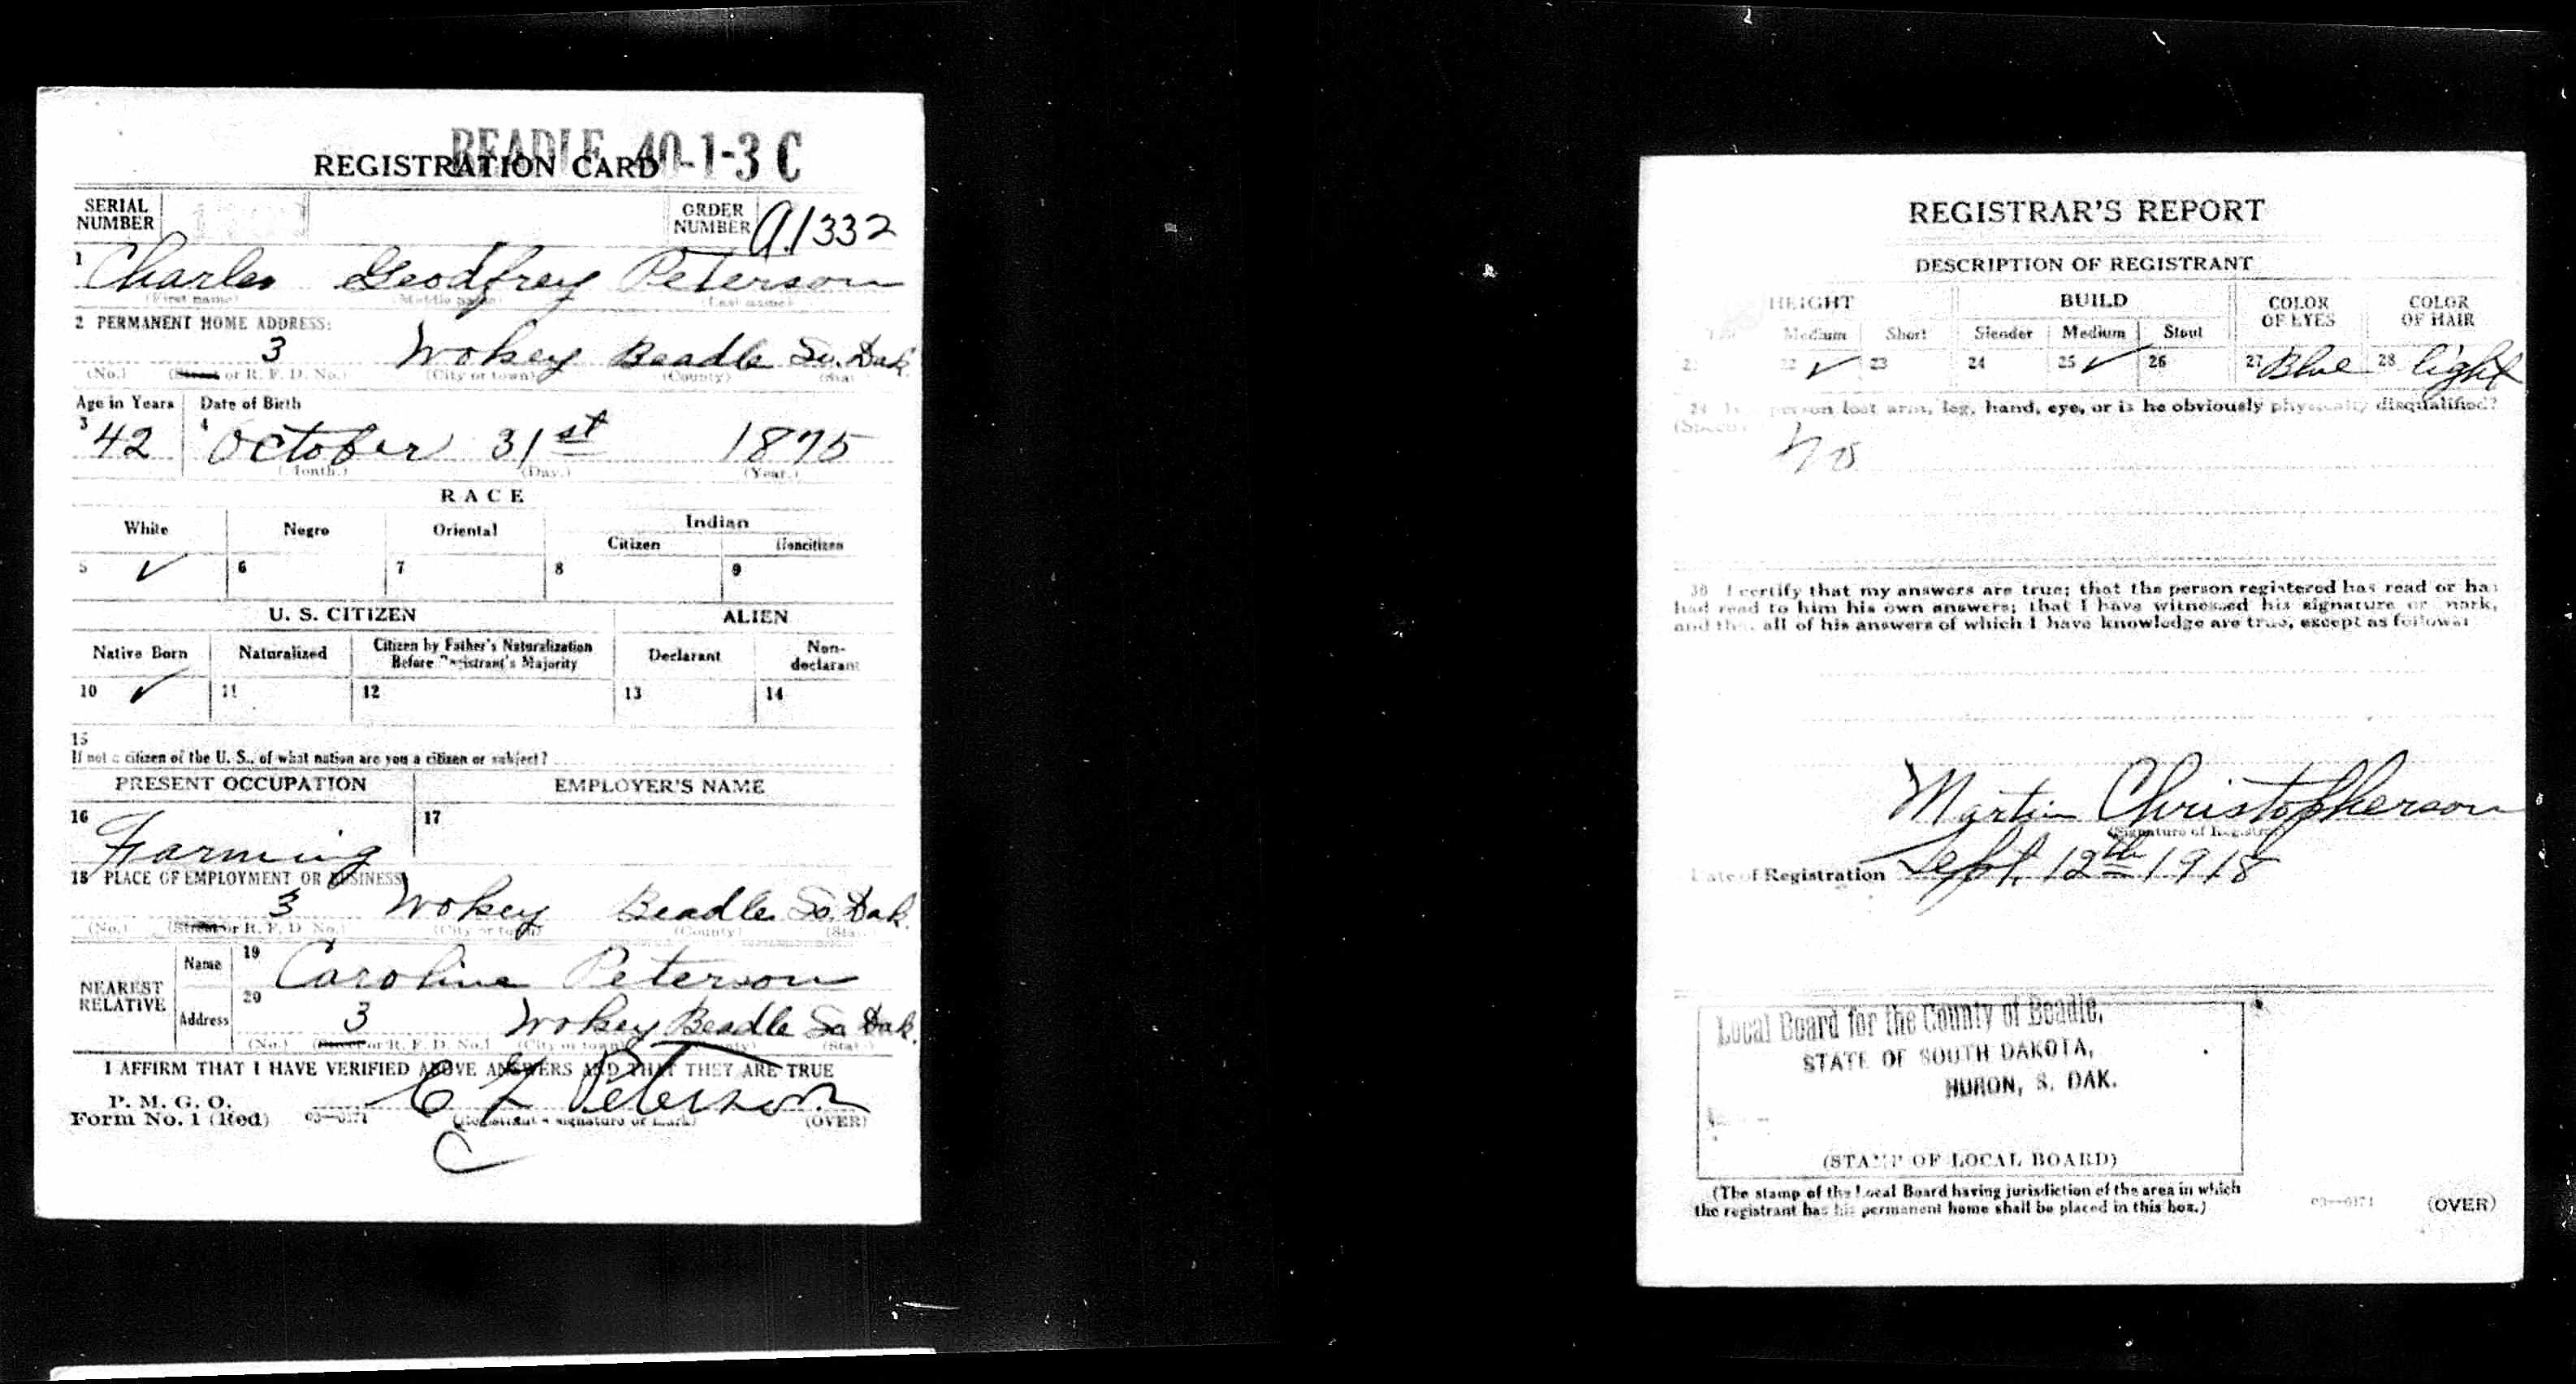 BEADLE 40-1-3 C
REGISTRATION CARD
SERIAL NUMBER
ORDER NUMBER A1332
1 Charles Geodfrey Peterson
(First name) (Middle name) (Last name)
2 PERMANENT HOME ADDRESS:
3 Wokey Beadle So. Dak.
(No.) (Street or R. F. D. No.) (City or town) (County) (State)
Age in Years Date of Birth
3 42 4 October 31st 1875
(Month.) (Day.) (Year.)
RACE
White Negro Oriental Indian
Citizen Noncitizen
5 ✓ 6 7 8 9
U. S. CITIZEN ALIEN
Native Born Naturalized Citizen by Father's Naturalization Before Registrant's Majority Declarant Non-declarant
10 ✓ 11 12 13 14
15
If not a citizen of the U. S., of what nation are you a citizen or subject?
PRESENT OCCUPATION EMPLOYER'S NAME
16 Farming 17
18 PLACE OF EMPLOYMENT OR BUSINESS
3 Wokey Beadle So. Dak.
(No.) (Street or R. F. D. No.) (City or town) (County) (State)
NEAREST RELATIVE
Name 19 Caroline Peterson
Address 20 3 Wokey Beadle So Dak.
(No.) (Street or R. F. D. No.) (City or town) (County) (State)
I AFFIRM THAT I HAVE VERIFIED ABOVE ANSWERS AND THAT THEY ARE TRUE
P. M. G. O.
Form No. 1 (Red) 03—6171 C G Peterson
(Registrant's signature or mark) (OVER)
C
REGISTRAR'S REPORT
DESCRIPTION OF REGISTRANT
HEIGHT BUILD COLOR OF EYES COLOR OF HAIR
Medium Short Slender Medium Stout
21 22 ✓ 23 24 25 ✓ 26 27 Blue 28 light
29 person lost arm, leg, hand, eye, or is he obviously physically disqualified?
(Specify) no
30 I certify that my answers are true; that the person registered has read or has
had read to him his own answers; that I have witnessed his signature or mark,
and that all of his answers of which I have knowledge are true, except as follows:
Martin Christopherson
(Signature of Registrar)
Date of Registration Sept. 12th 1918
Local Board for the County of Beadle,
STATE OF SOUTH DAKOTA,
HURON, S. DAK.
(STAMP OF LOCAL BOARD)
(The stamp of the Local Board having jurisdiction of the area in which
the registrant has his permanent home shall be placed in this box.)
03—6171 (OVER)